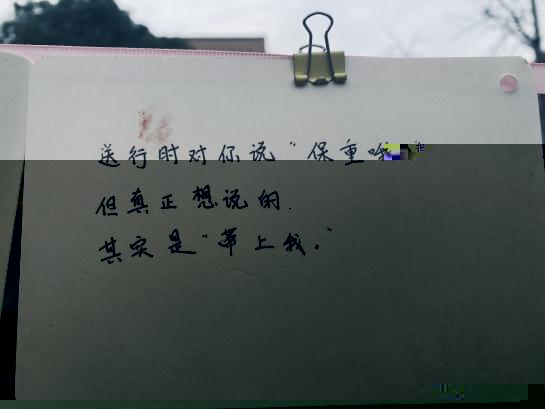 送行时对你说“保重哦
但真正想说的.
其实是“带上我。”